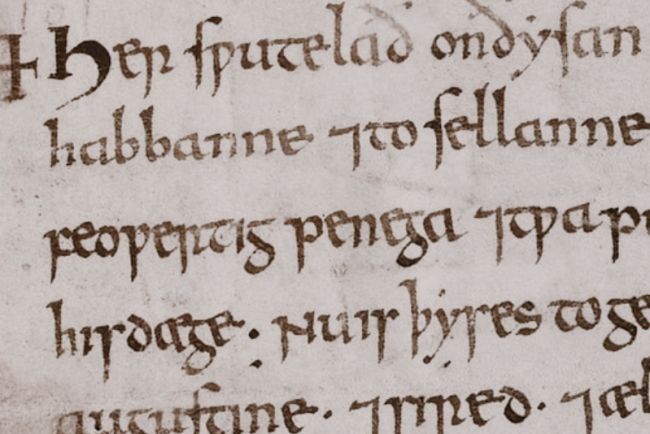 + Her sƿutelað onðysan
habbanne ⁊to sellanne
feoƿertig penega ⁊tƿa pu
hisdæge. Nu is þyses toge
augustine. ⁊sired. ⁊æl